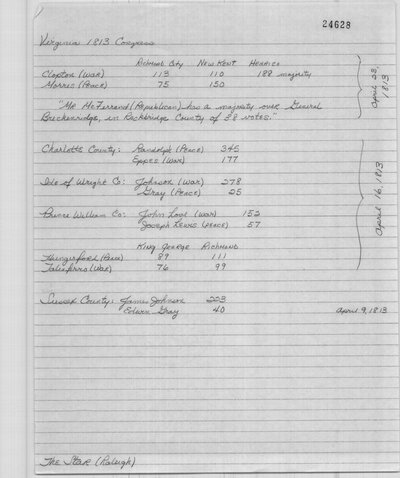 24628
Virginia 1813 Congress
Richmond City New Kent Henrico
Clopton (War) 113 110 188 majority
Morris (Peace) 75 150
April 23, 1813
"Mr McFarrand (Republican) has a majority over General
Breckenridge, in Rockbridge County of 38 votes."
Charlotte County: Randolph (Peace) 345
Eppes (War) 177
Isle of Wright Co: Johnson (War) 278
Gray (Peace) 25
April 16, 1813
Prince William Co: John Love (war) 152
Joseph Lewis (peace) 57
King George Richmond
Hungerford (Peace) 87 111
Taliaferro (War) 76 99
Sussex County: James Johnson 223
Edwin Gray 40 April 9, 1813
The Star (Raleigh)